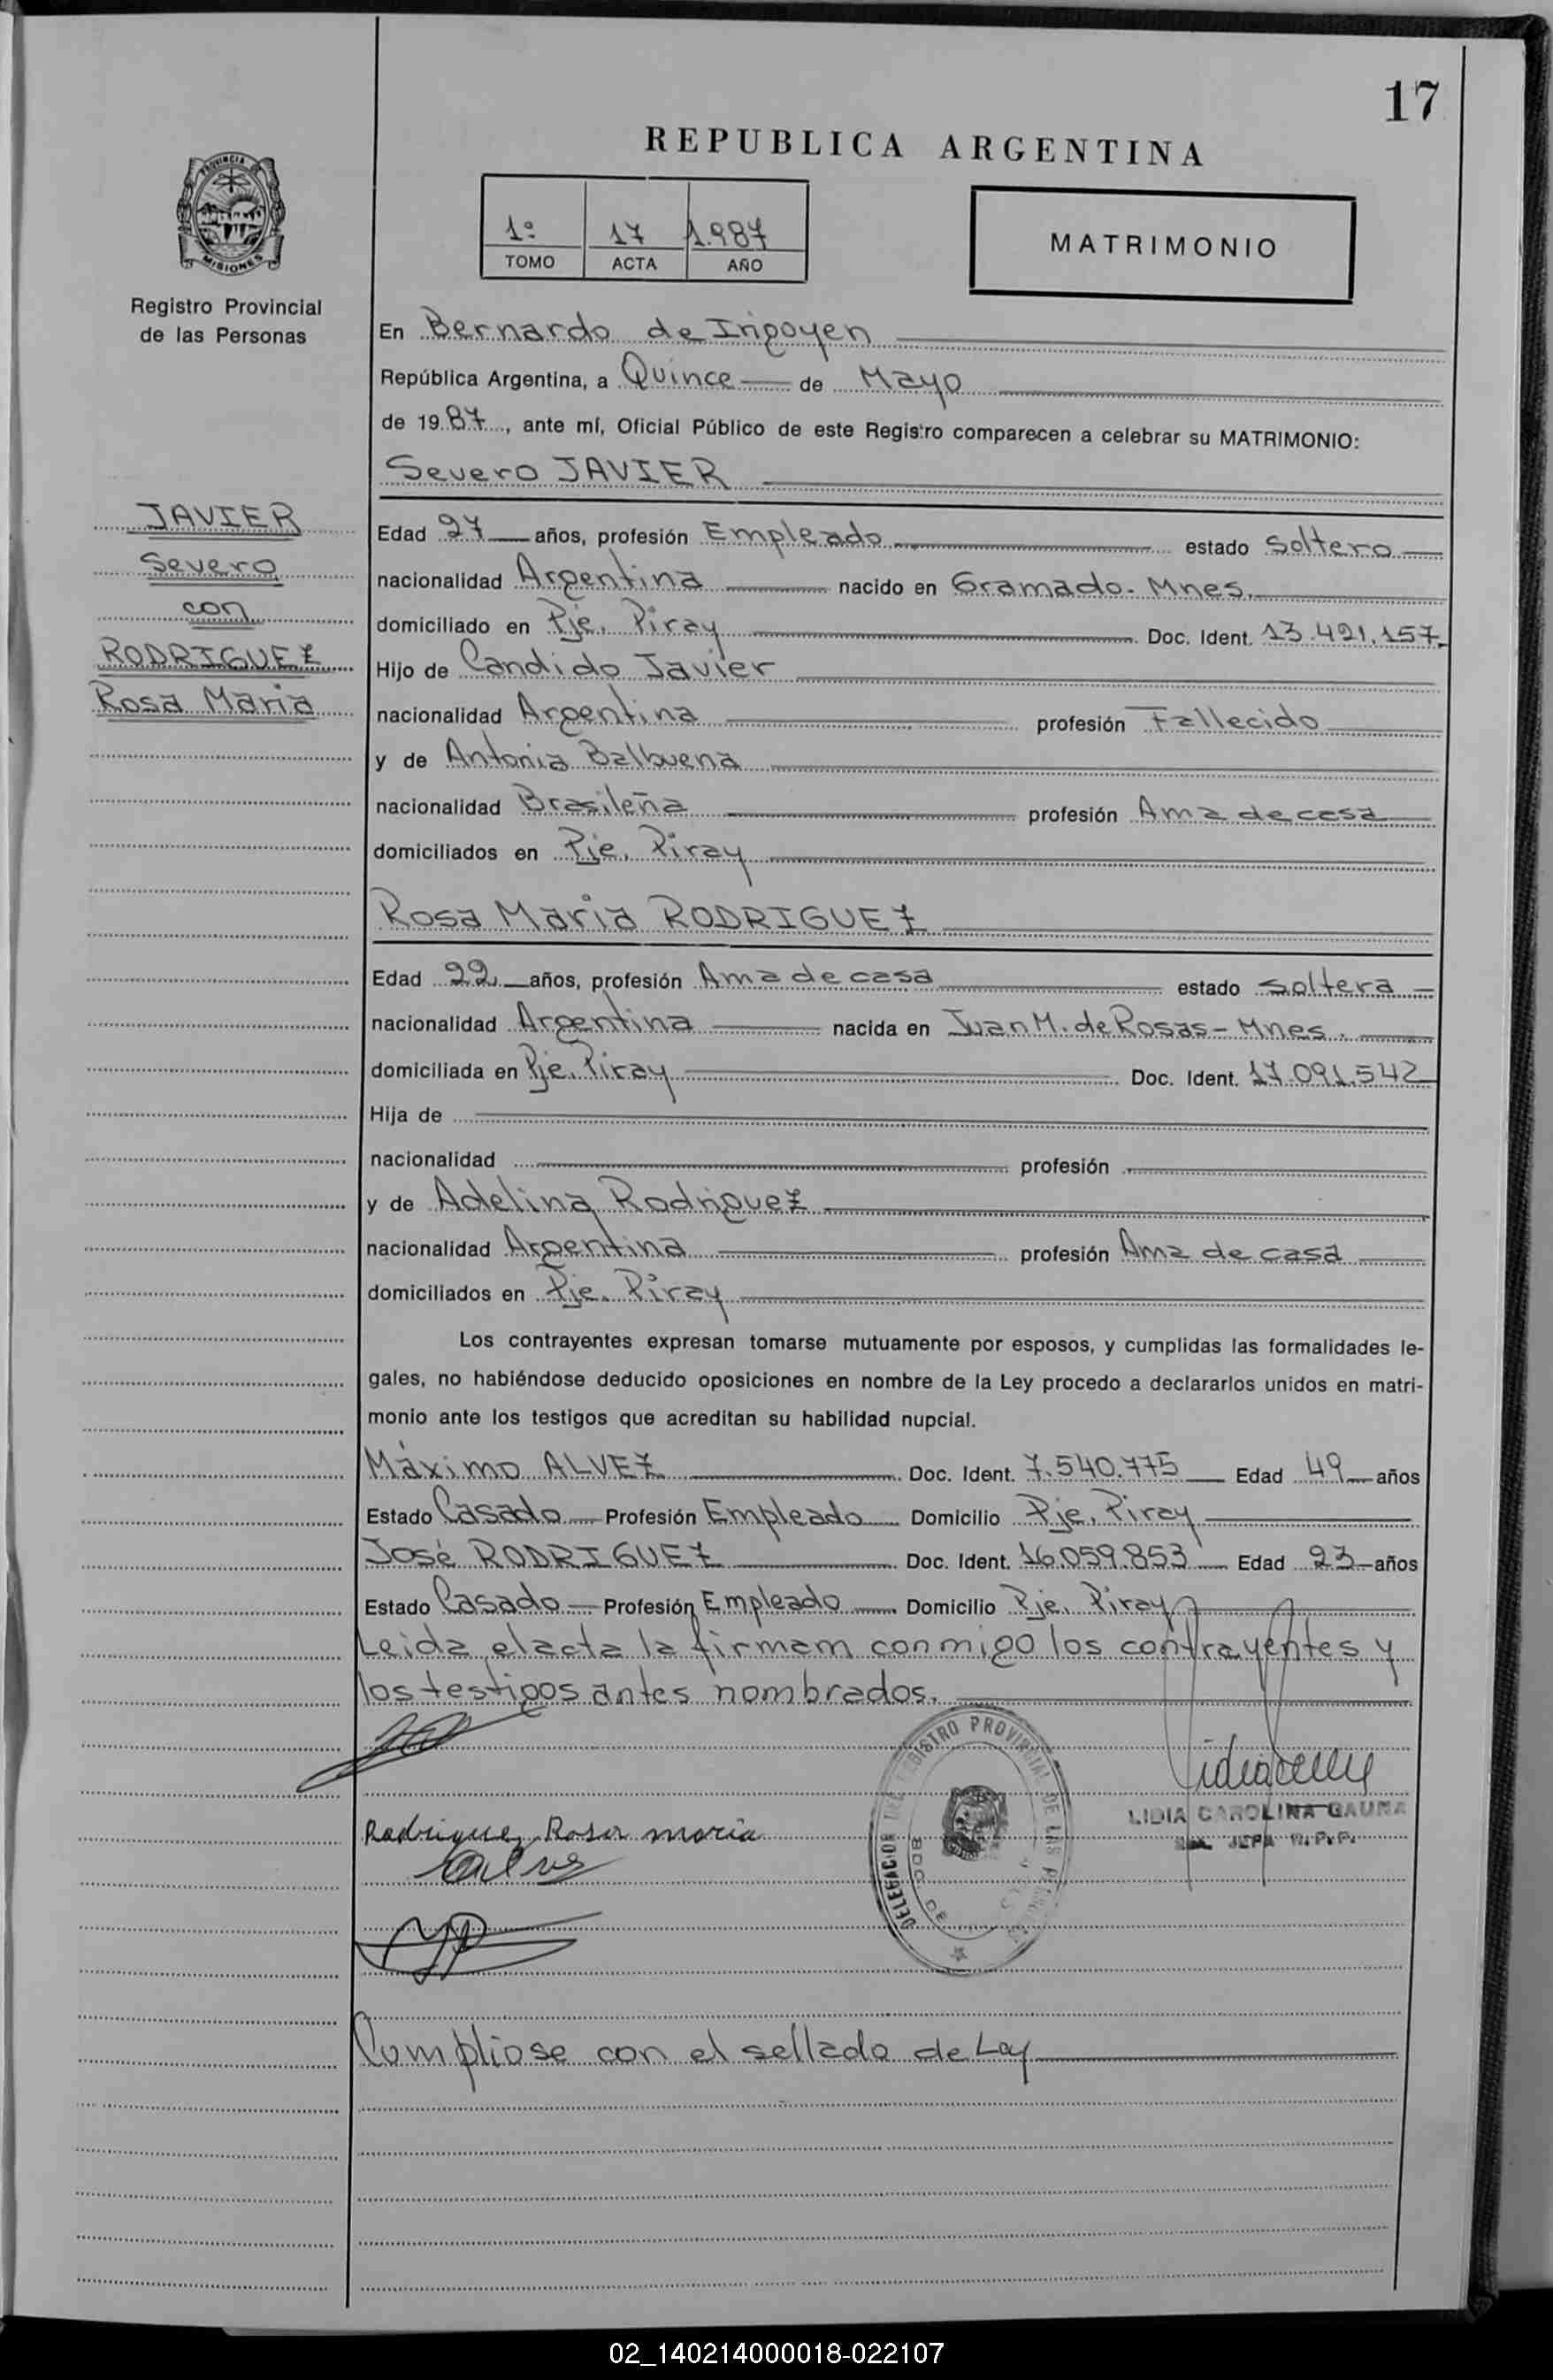 17
REPUBLICA ARGENTINA
PROVINCIA
MISIONES
Registro Provincial
de las Personas
1º 17 1.987
TOMO ACTA AÑO
MATRIMONIO
En Bernardo de Irigoyen
República Argentina, a Quince de Mayo
de 1987, ante mí, Oficial Público de este Registro comparecen a celebrar su MATRIMONIO:
Severo JAVIER
JAVIER
Severo
con
RODRIGUEZ
Rosa Maria
Edad 27 años, profesión Empleado estado soltero
nacionalidad Argentina nacido en Gramado - Mnes.
domiciliado en Pje. Piray Doc. Ident. 13.421.157
Hijo de Candido Javier
nacionalidad Argentina profesión Fallecido
y de Antonia Balbuena
nacionalidad Brasileña profesión Ama de casa
domiciliados en Pje. Piray
Rosa Maria RODRIGUEZ
Edad 22 años, profesión Ama de casa estado soltera
nacionalidad Argentina nacida en Juan M. de Rosas - Mnes.
domiciliada en Pje. Piray Doc. Ident. 17.091.542
Hija de
nacionalidad profesión
y de Adelina Rodriguez
nacionalidad Argentina profesión Ama de casa
domiciliados en Pje. Piray
Los contrayentes expresan tomarse mutuamente por esposos, y cumplidas las formalidades le-
gales, no habiéndose deducido oposiciones en nombre de la Ley procedo a declararlos unidos en matri-
monio ante los testigos que acreditan su habilidad nupcial.
Máximo ALVEZ Doc. Ident. 7.540.775 Edad 49 años
Estado Casado Profesión Empleado Domicilio Pje. Piray
José RODRIGUEZ Doc. Ident. 16.059.853 Edad 23 años
Estado Casado Profesión Empleado Domicilio Pje. Piray
Leida el acta la firmam conmigo los contrayentes y
los testigos antes nombrados.
Rodriguez Rosa maria
DELEGACION REGISTRO PROVINCIAL DE LAS
BDO DE
LIDIA CAROLINA GAUNA
JEFA R.P.P.
Cumpliose con el sellado de Ley
02_140214000018-022107